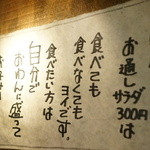 お通しサラダ300円は
食べても
食べなくても
ヨイです。
食べたい方は
自分で
おわんに盛って